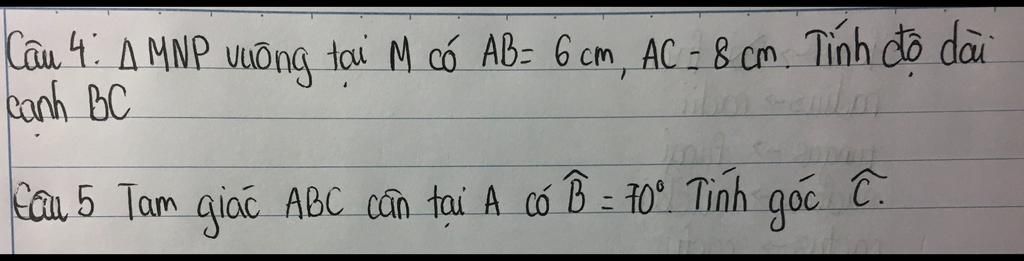 Câu 4: Δ MNP vuông tại M có AB = 6 cm, AC = 8 cm. Tính độ dài
cạnh BC
Câu 5 Tam giác ABC cân tại A có B̂ = 70°. Tính góc Ĉ.